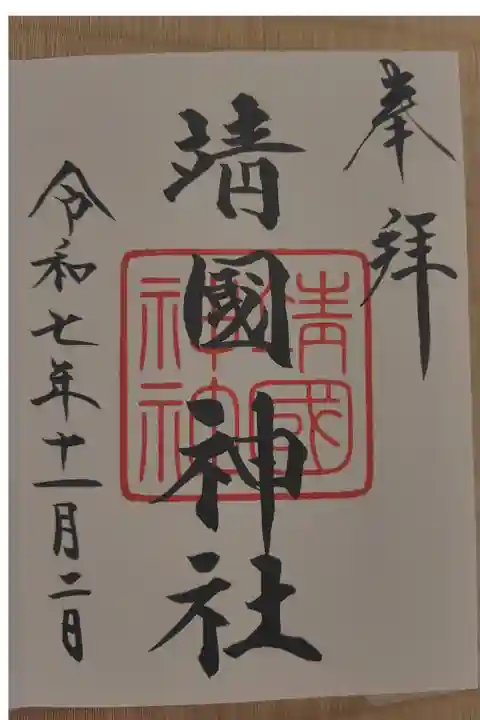 奉拝
靖國神社
靖國
神社
令和七年十一月二日